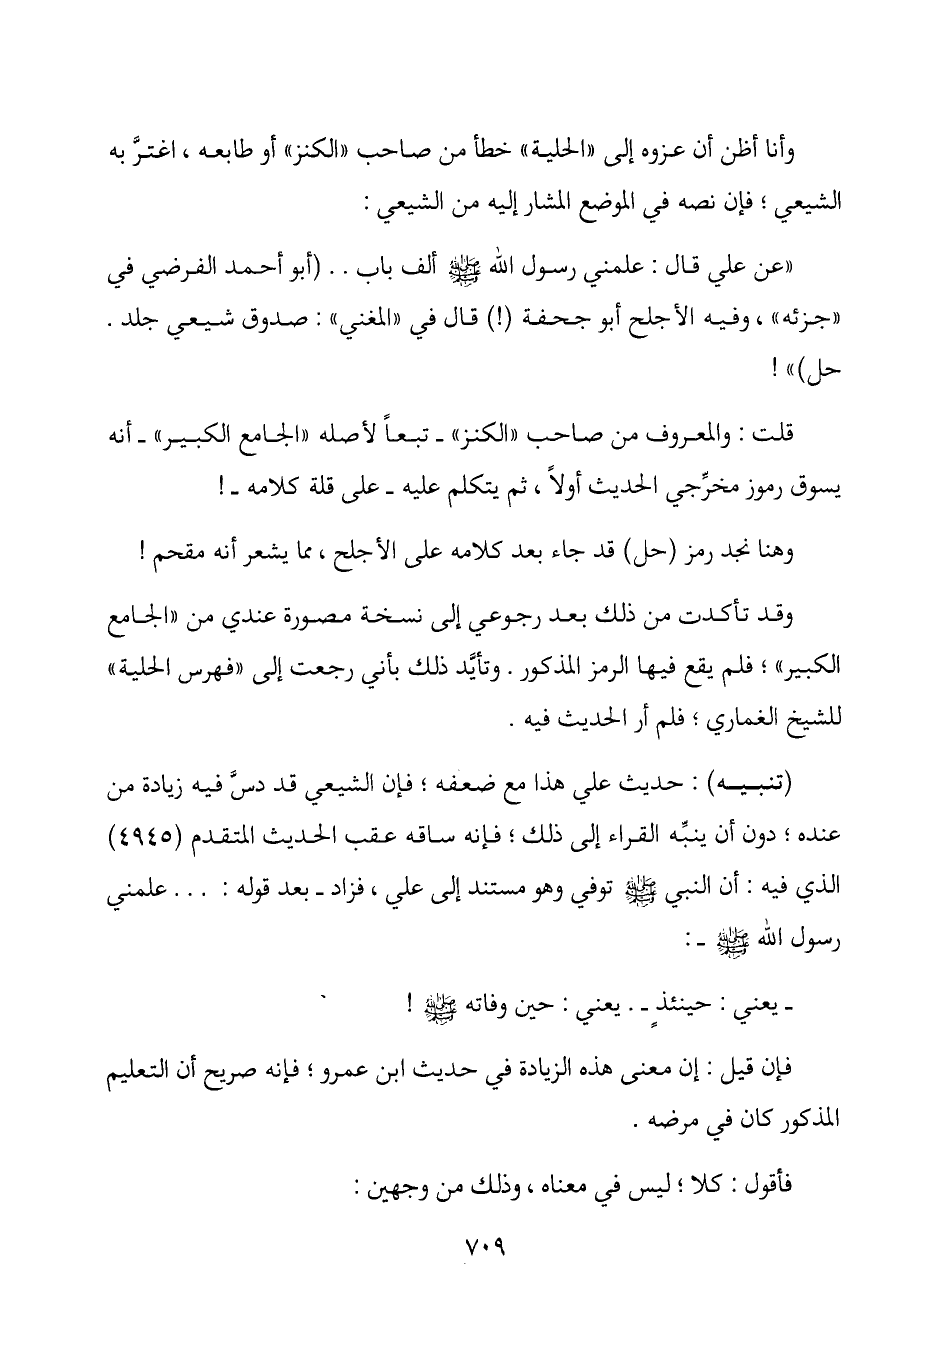 وأنا أظن أن عزوه إلى «الحلية» خطأ من صاحب «الكنز» أو طابعه ، اغترَّ به
الشيعي ؛ فإن نصه في الموضع المشار إليه من الشيعي :
«عن علي قال : علمني رسول الله ﷺ ألف باب . . (أبو أحمد الفرضي في
«جزئه» ، وفيه الأجلح أبو جحفة (!) قال في «المغني» : صدوق شيعي جلد .
حل)» !
قلت : والمعروف من صاحب «الكنز» ـ تبعاً لأصله «الجامع الكبير» ـ أنه
يسوق رموز مخرِّجي الحديث أولاً ، ثم يتكلم عليه ـ على قلة كلامه ـ !
وهنا نجد رمز (حل) قد جاء بعد كلامه على الأجلح ، مما يشعر أنه مقحم !
وقد تأكدت من ذلك بعد رجوعي إلى نسخة مصورة عندي من «الجامع
الكبير» ؛ فلم يقع فيها الرمز المذكور . وتأيَّد ذلك بأني رجعت إلى «فهرس الحلية»
للشيخ الغماري ؛ فلم أر الحديث فيه .
(تنبيه) : حديث علي هذا مع ضعفه ؛ فإن الشيعي قد دسَّ فيه زيادة من
عنده ؛ دون أن ينبِّه القراء إلى ذلك ؛ فإنه ساقه عقب الحديث المتقدم (٤٩٤٥)
الذي فيه : أن النبي ﷺ توفي وهو مستند إلى علي ، فزاد ـ بعد قوله : . . . علمني
رسول الله ﷺ ـ :
ـ يعني : حينئذٍ ـ . . يعني : حين وفاته ﷺ !
فإن قيل : إن معنى هذه الزيادة في حديث ابن عمرو ؛ فإنه صريح أن التعليم
المذكور كان في مرضه .
فأقول : كلا ؛ ليس في معناه ، وذلك من وجهين :
٧٠٩